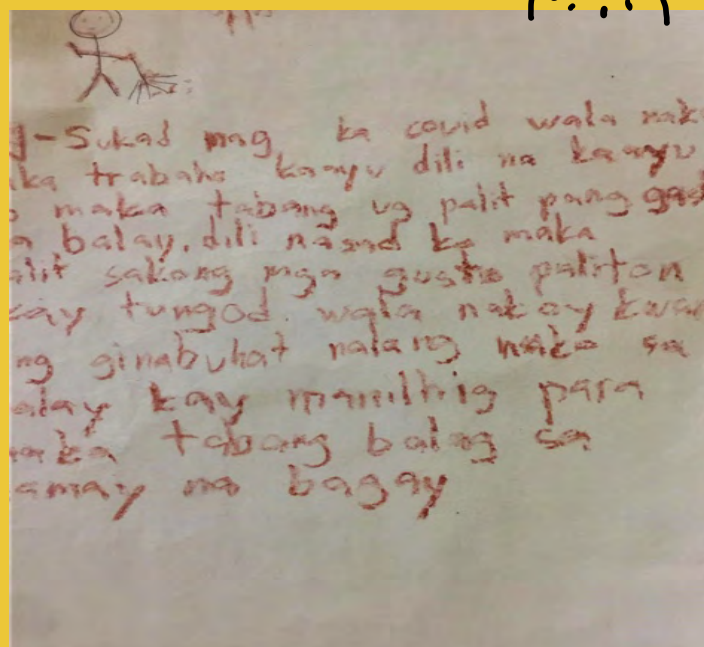 g-sukad mag ka covid wala nak
ka trabaho kaayu dili na kaayu
maka tabang ug palit pang gas
a balay. dili nasad ko maka
alit sakong mga gusto paliton
kay tungod wala nakoy kwar
ng ginabuhat nalang nako sa
alay kay manilhig para
maka tabang balag sa
amay na bagay